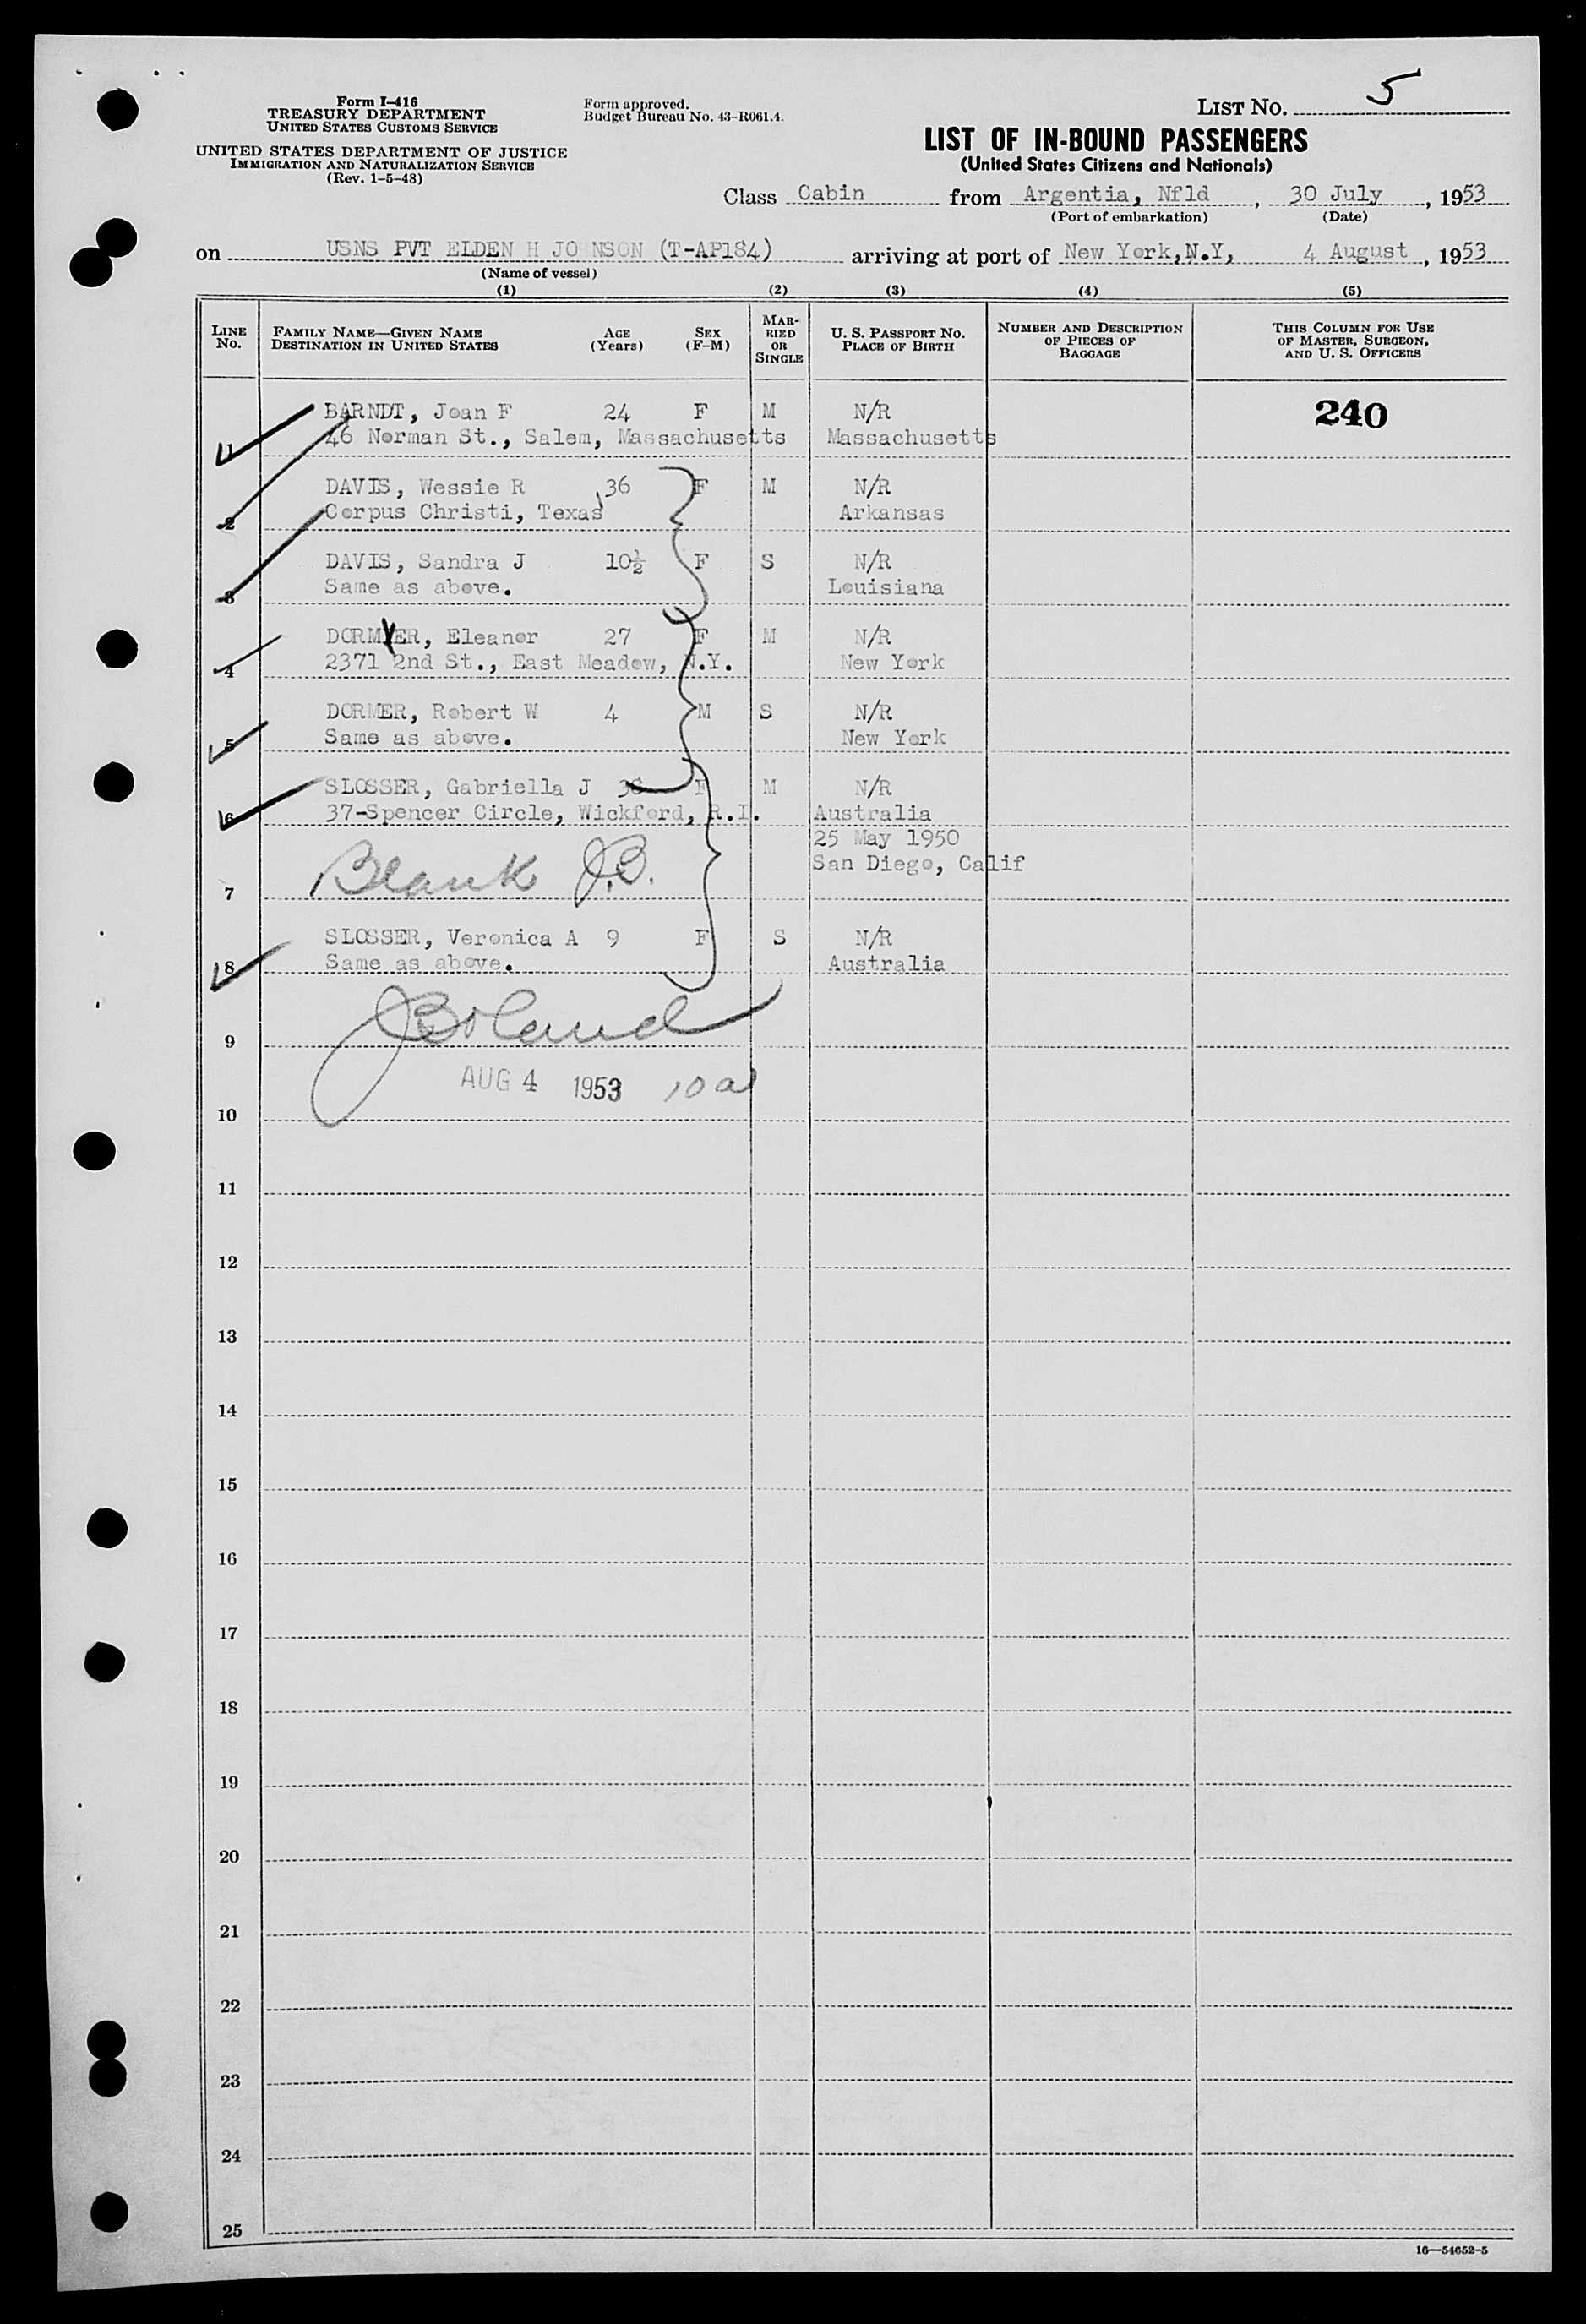 Form I-416
TREASURY DEPARTMENT
UNITED STATES CUSTOMS SERVICE
UNITED STATES DEPARTMENT OF JUSTICE
IMMIGRATION AND NATURALIZATION SERVICE
(Rev. 1-5-48)
Form approved.
Budget Bureau No. 43-R061.4.
LIST NO. 5
LIST OF IN-BOUND PASSENGERS
(United States Citizens and Nationals)
Class Cabin from Argentia, Nfld, 30 July, 1953
(Port of embarkation) (Date)
on USNS PVT ELDEN H JOHNSON (T-AP184) arriving at port of New York,N.Y, 4 August, 1953
(Name of vessel)
(1) (2) (3) (4) (5)
LINE NO. FAMILY NAME—GIVEN NAME DESTINATION IN UNITED STATES AGE (Years) SEX (F-M) MARRIED OR SINGLE U. S. PASSPORT NO. PLACE OF BIRTH NUMBER AND DESCRIPTION OF PIECES OF BAGGAGE THIS COLUMN FOR USE OF MASTER, SURGEON, AND U. S. OFFICERS
BARNDT, Joan F 24 F M N/R 240
1 46 Norman St., Salem, Massachusetts Massachusetts
DAVIS, Wessie R 36 F M N/R
2 Corpus Christi, Texas Arkansas
DAVIS, Sandra J 10½ F S N/R
3 Same as above. Louisiana
DORMYER, Eleanor 27 F M N/R
4 2371 2nd St., East Meadow, N.Y. New York
DORMER, Robert W 4 M S N/R
5 Same as above. New York
SLOSSER, Gabriella J 36 F M N/R
6 37-Spencer Circle, Wickford, R.I. Australia
25 May 1950
7 Blank J.B. San Diego, Calif
SLOSSER, Veronica A 9 F S N/R
8 Same as above. Australia
9 JBoland
AUG 4 1953 10 a
10
11
12
13
14
15
16
17
18
19
20
21
22
23
24
25
16—54652-5